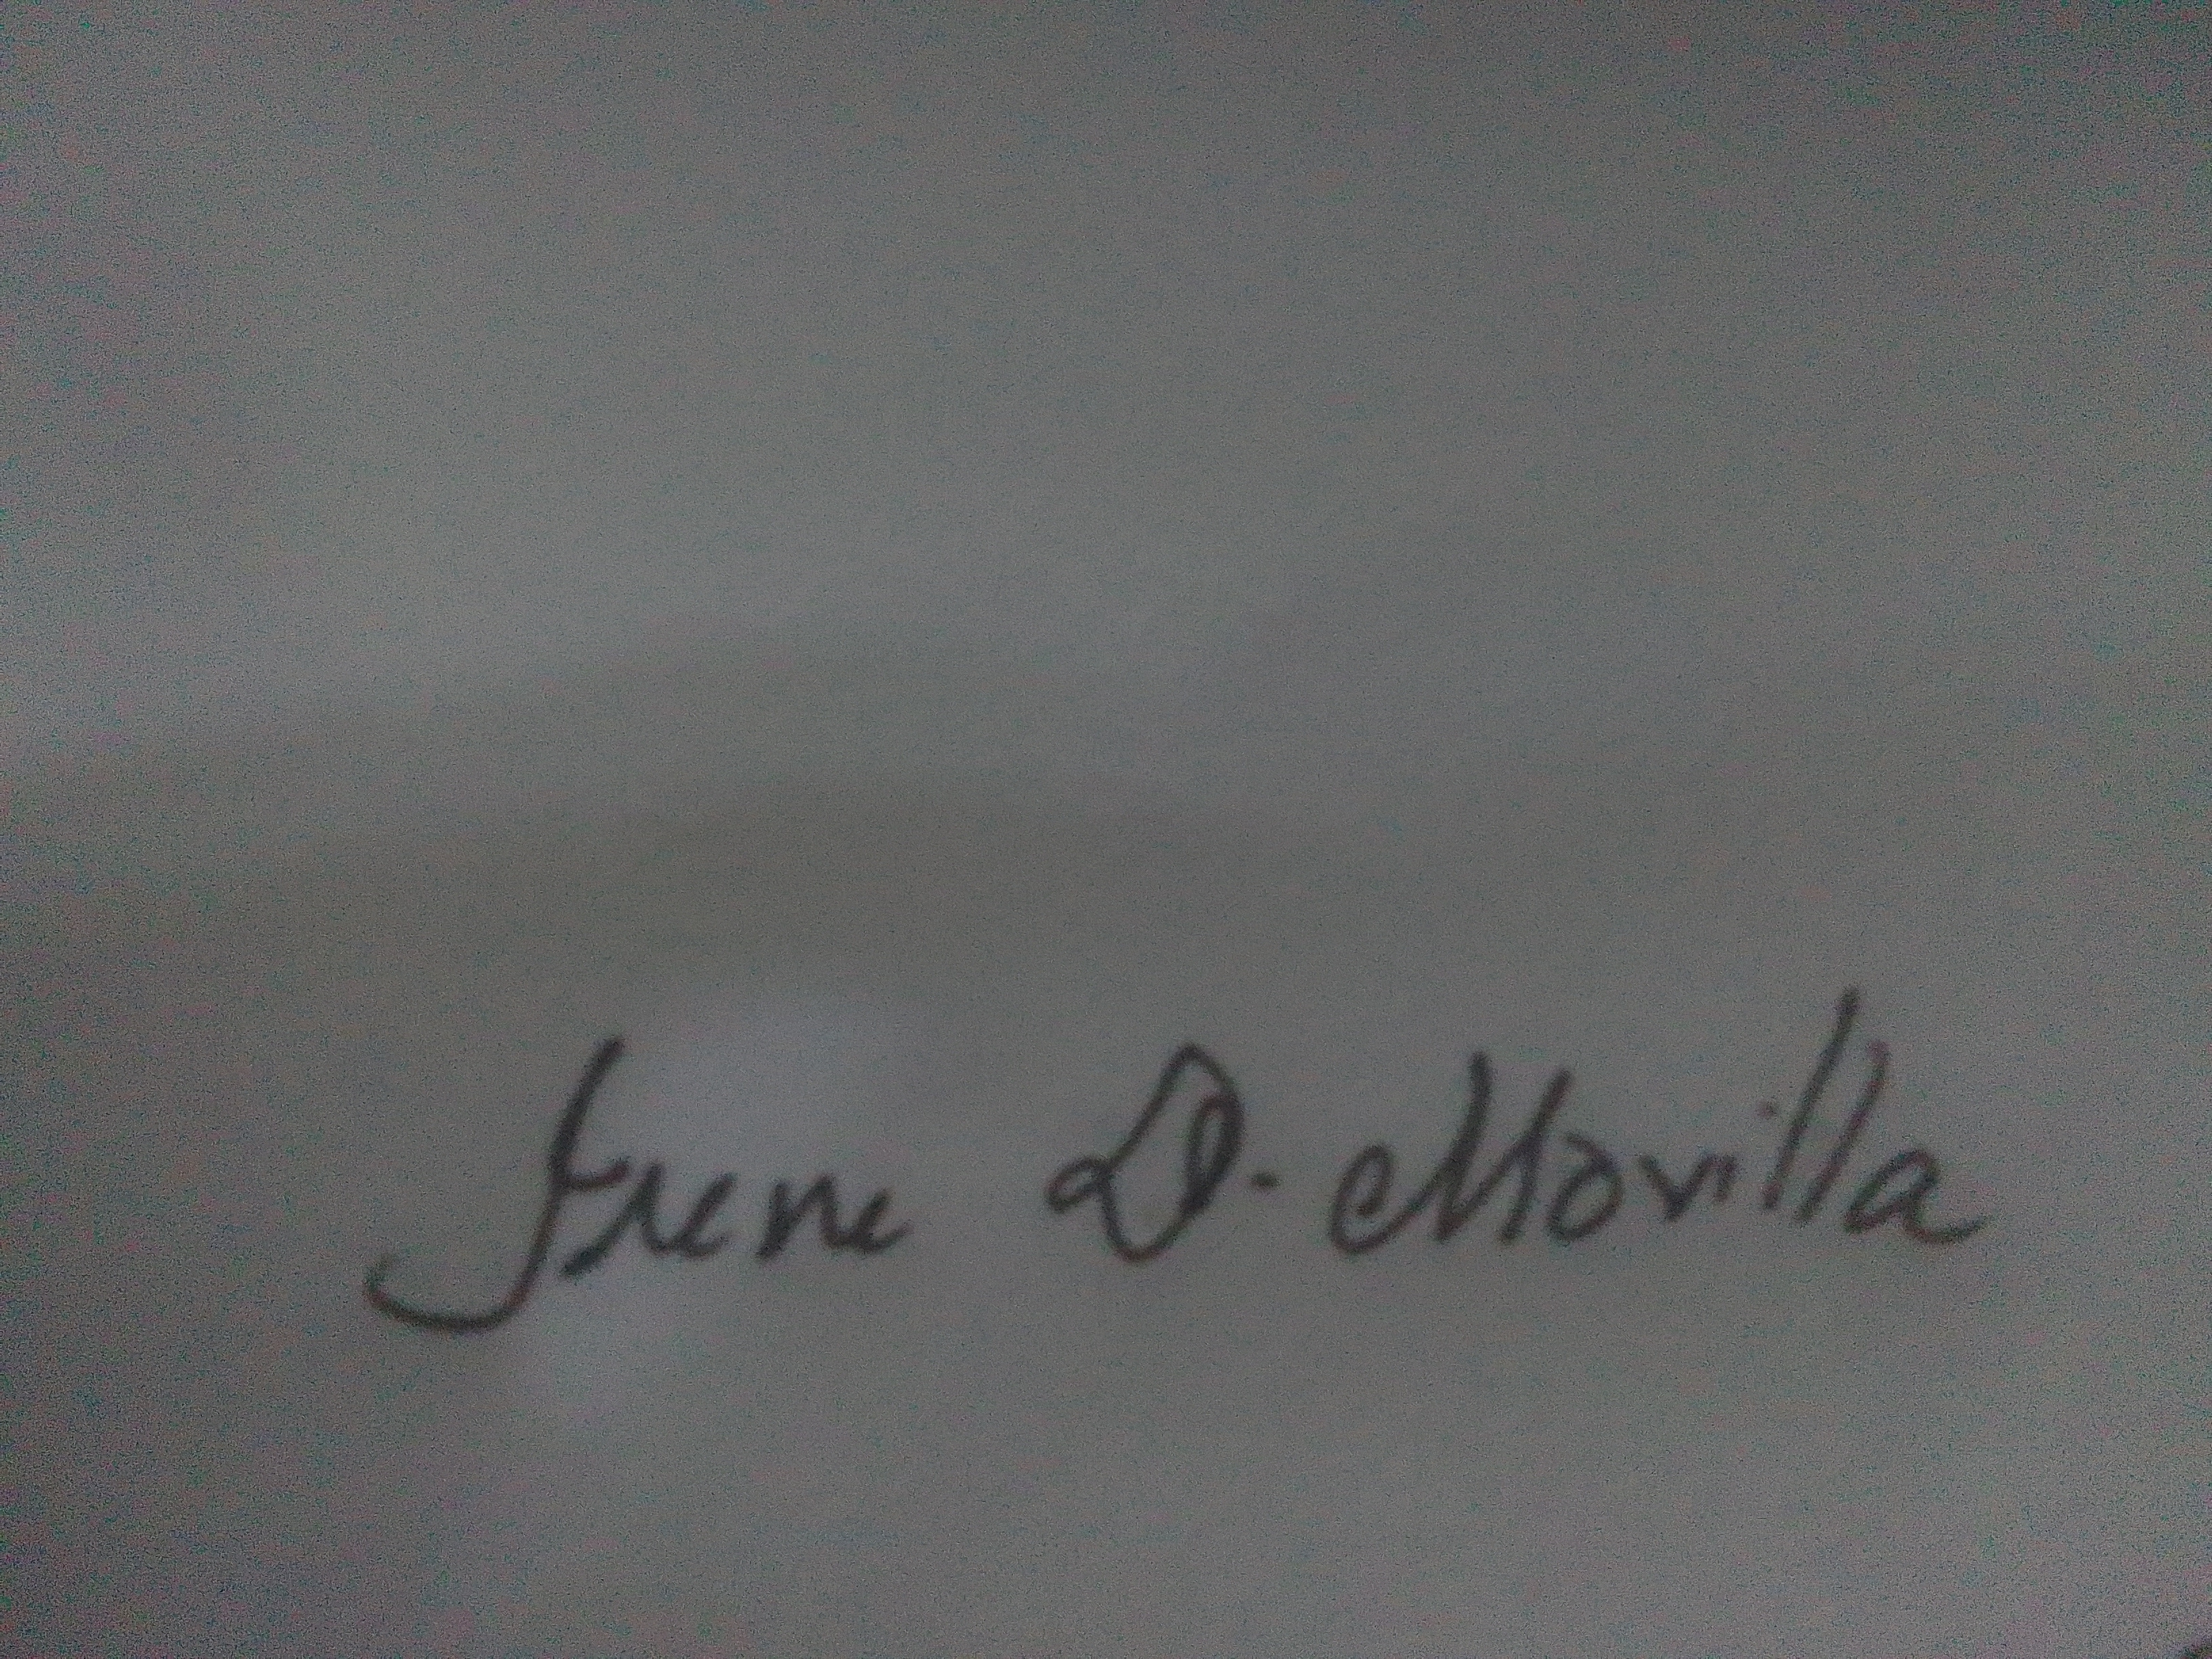 Irene D. Movilla